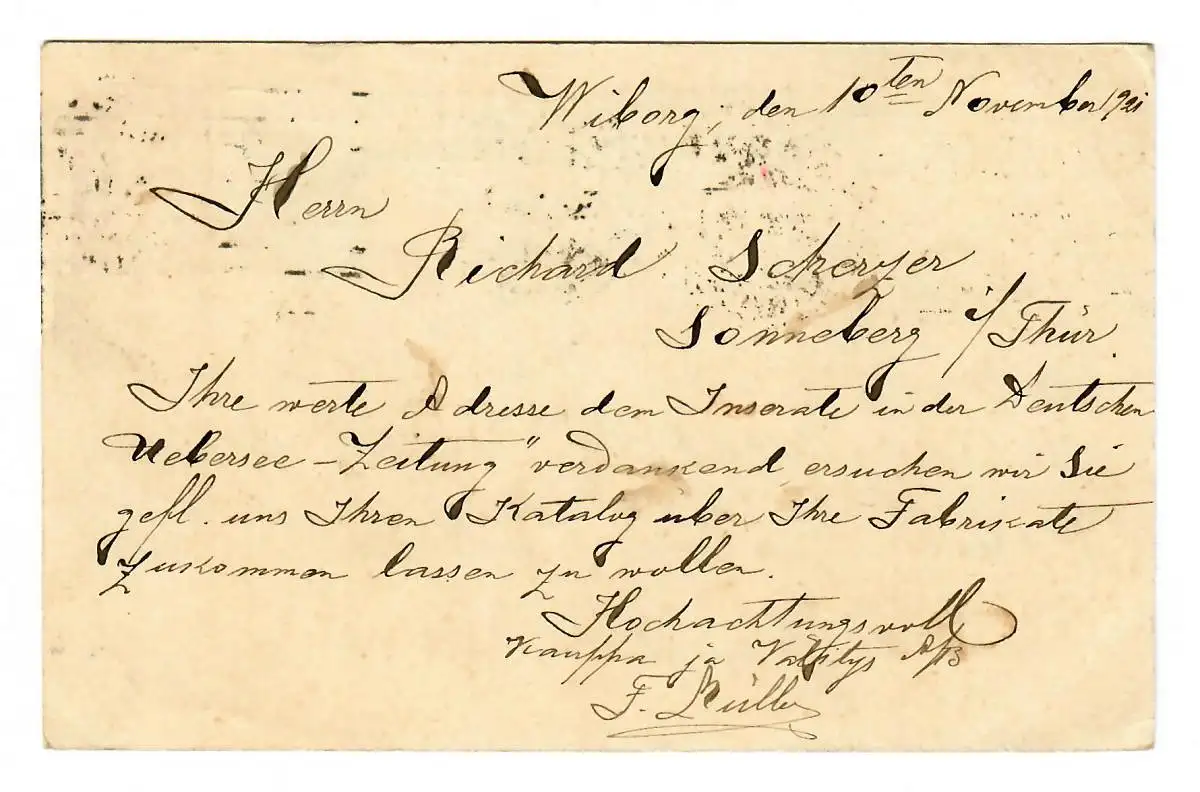 Wiborg, den 10ten November 1921
Herrn
Richard Scherzer
Sonneberg i/Thür.
Ihre werte Adresse dem Inserate in der Deutschen
Uebersee-Zeitung" verdankend ersuchen wir Sie
gefl. uns Ihren Katalog über Ihre Fabrikate
zukommen lassen zu wollen.
Hochachtungsvoll
Kauppa ja Välitys A/B
F.